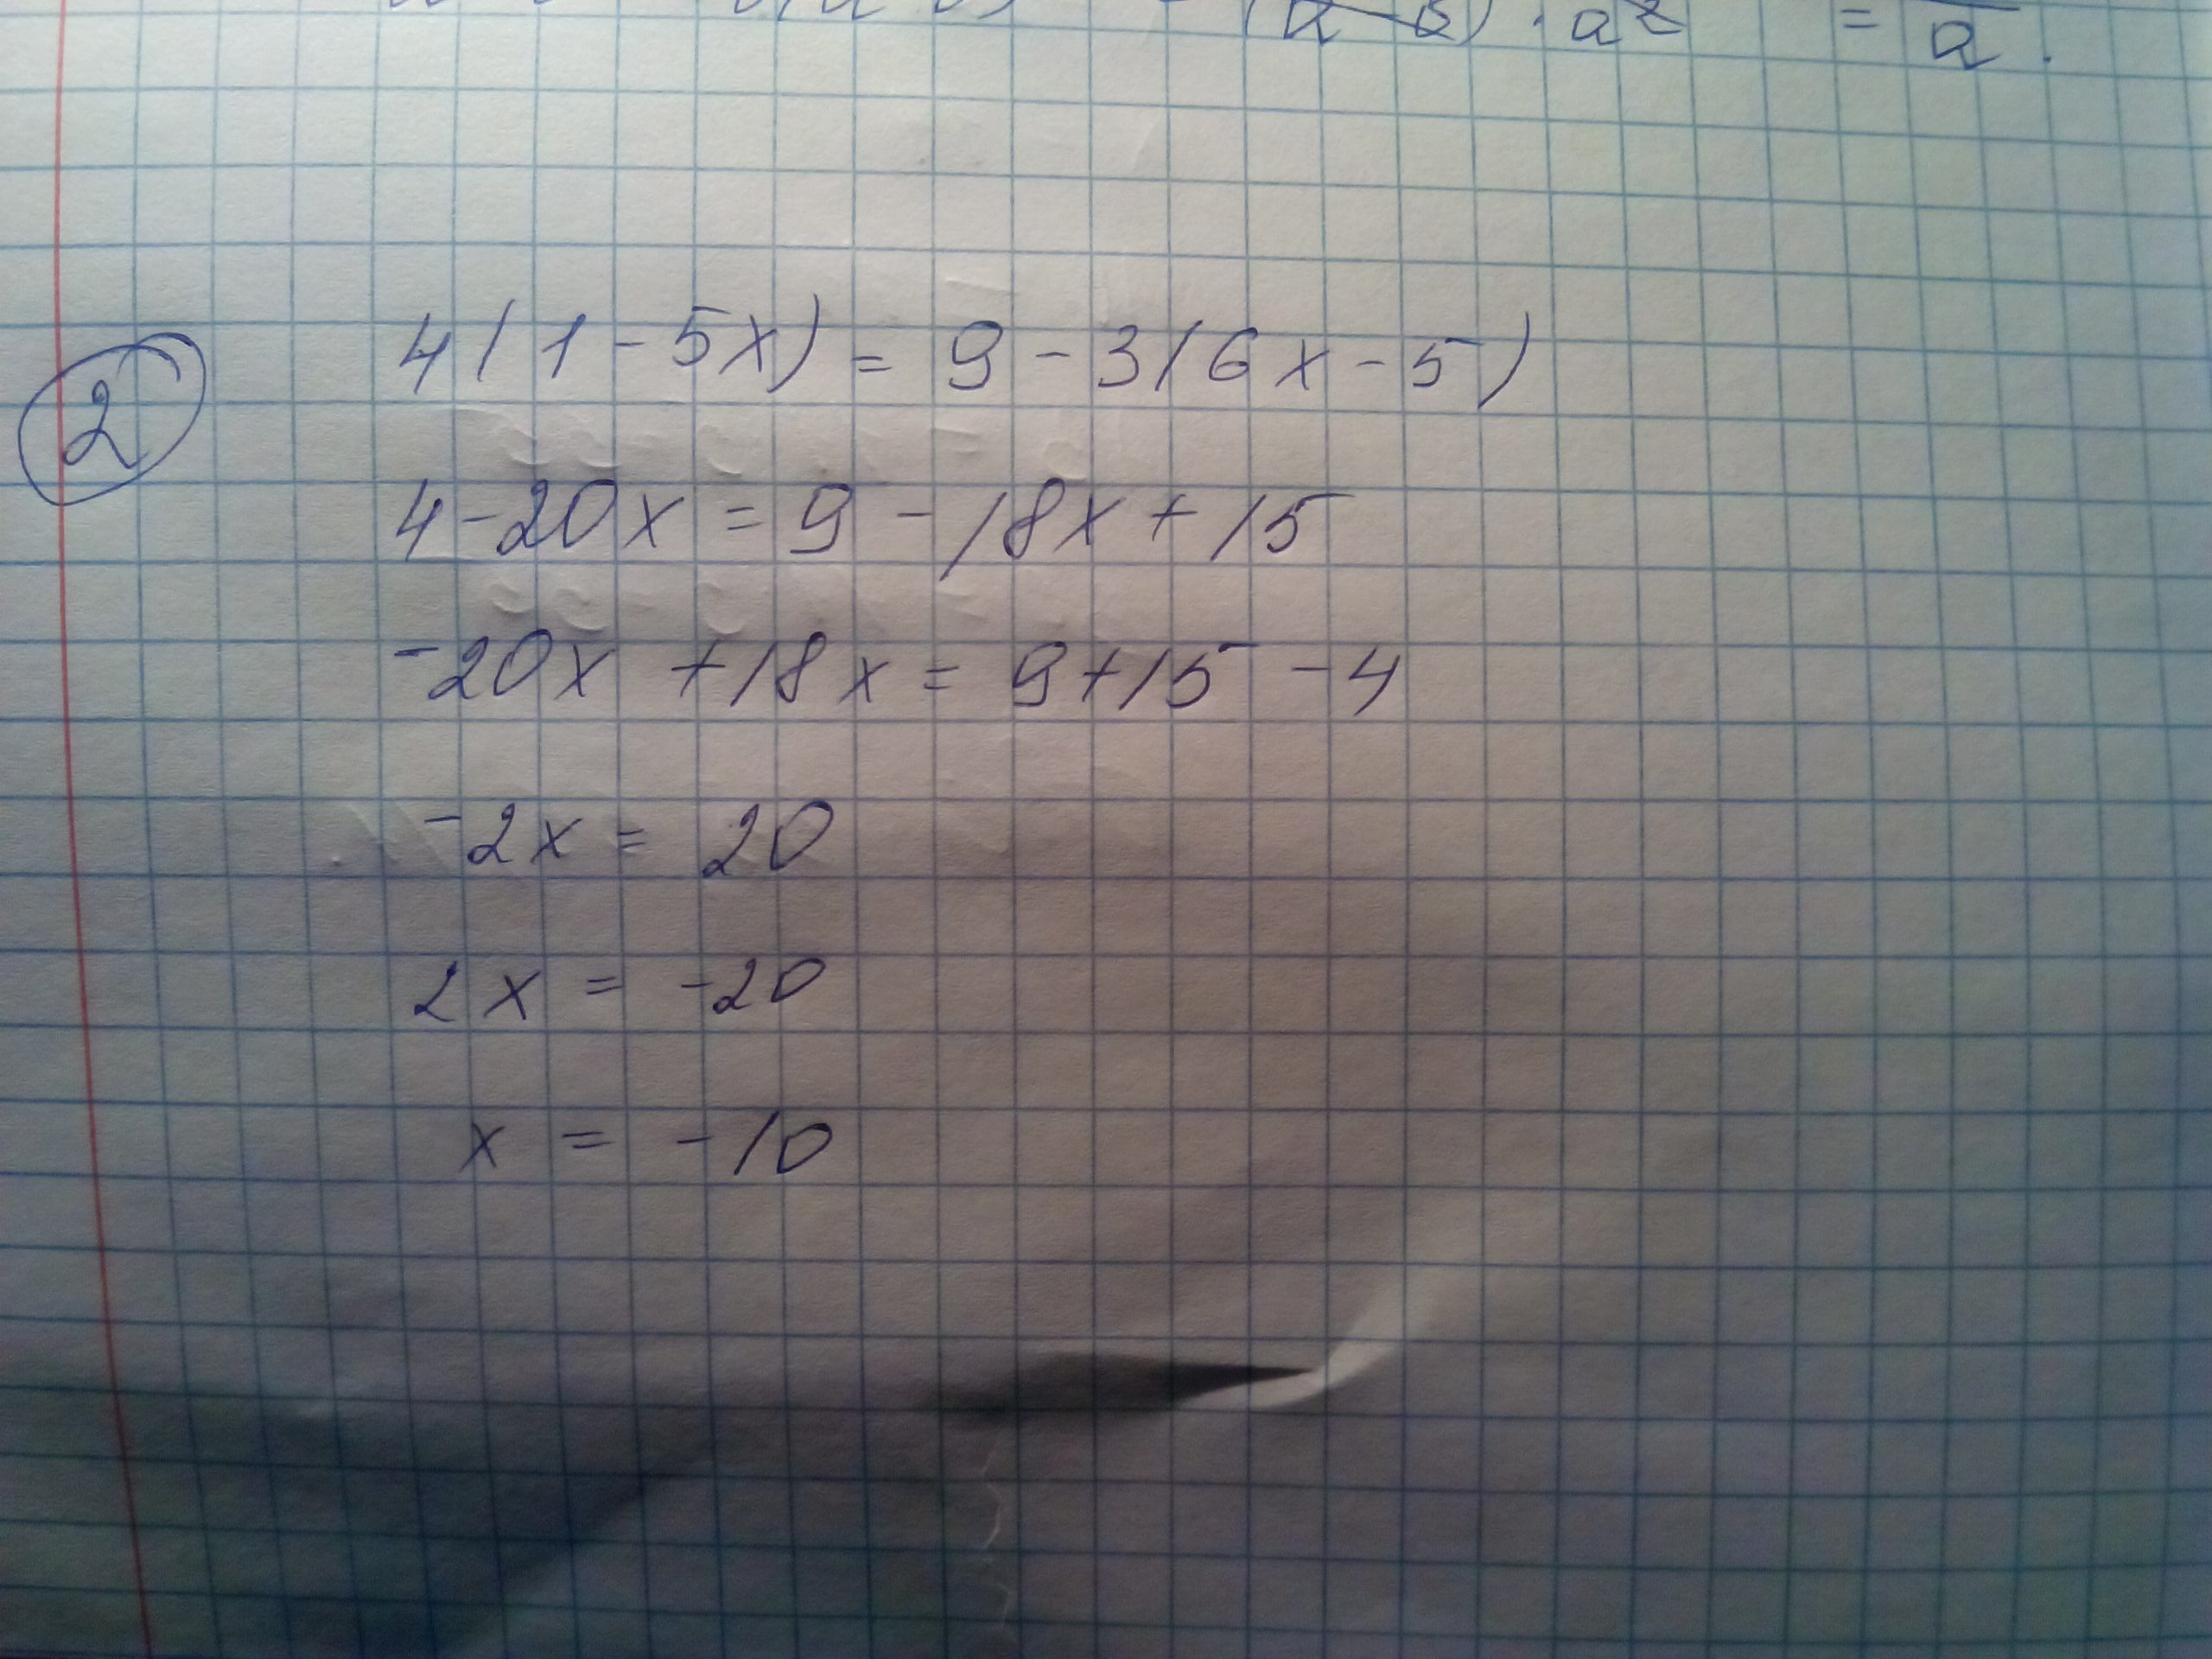 (a-b) · a² = a.
2
4(1-5x) = 9-3(6x-5)
4-20x = 9-18x+15
-20x +18x = 9+15-4
-2x = 20
2x = -20
x = -10